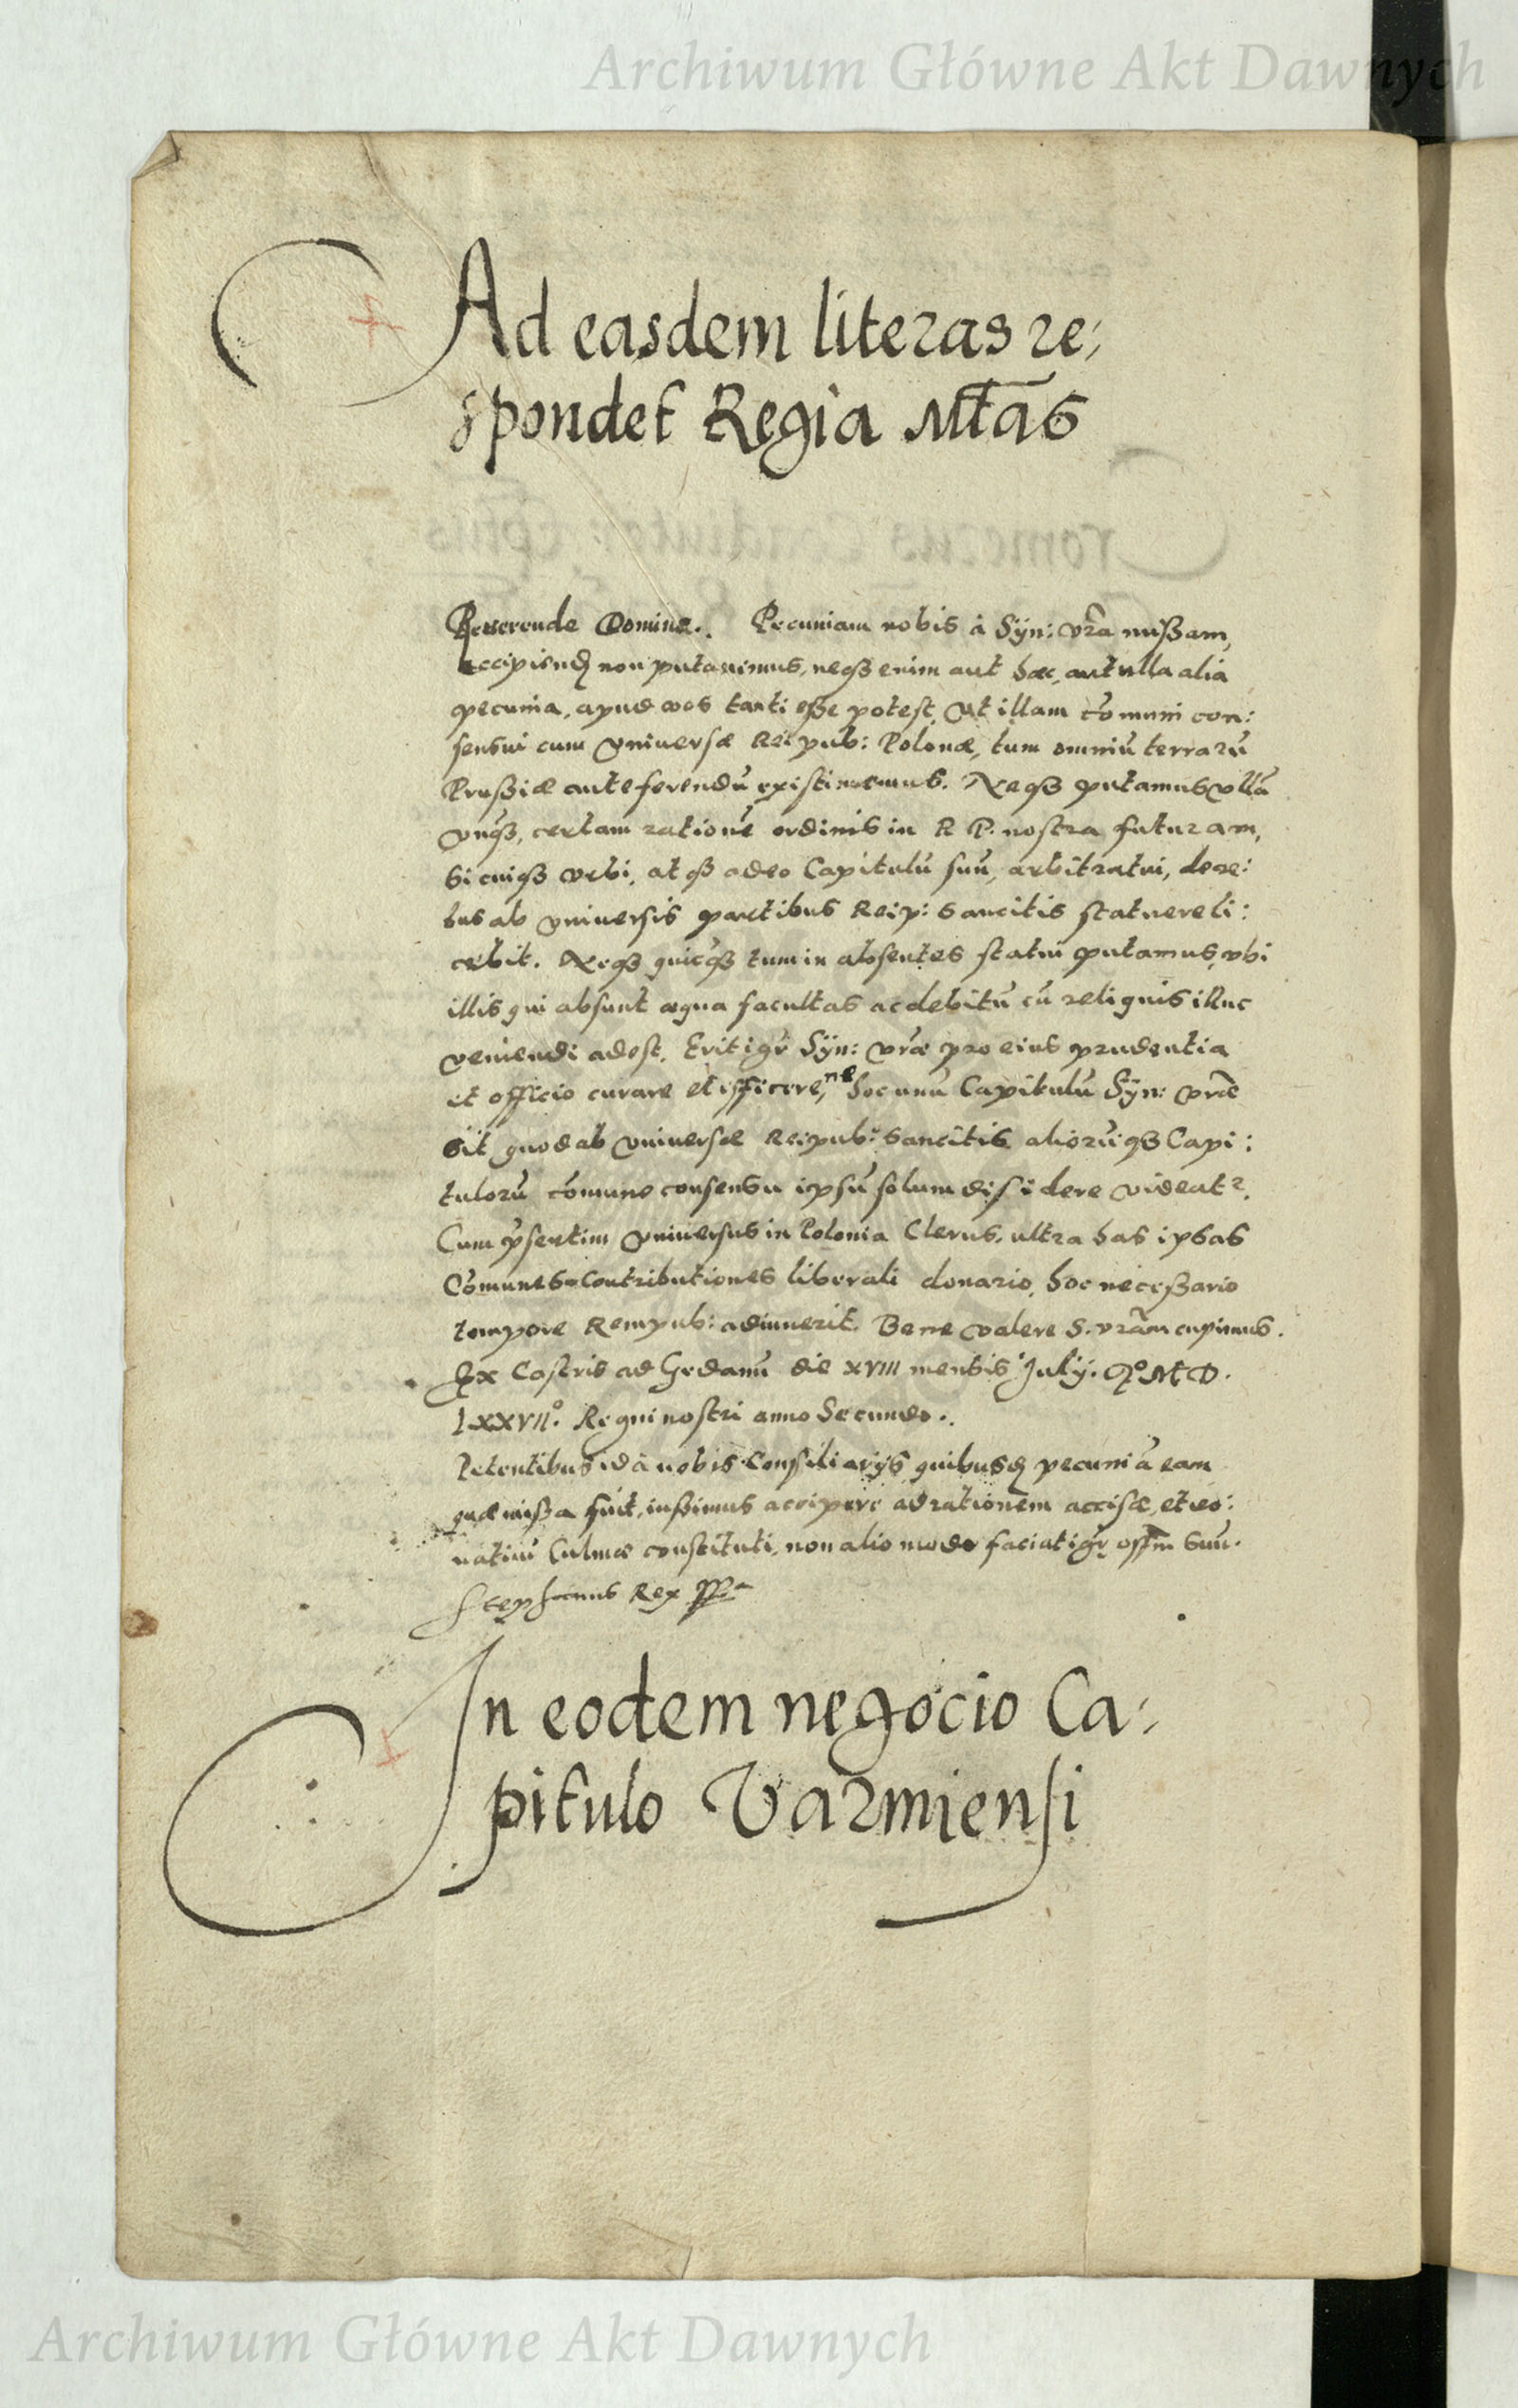 Archiwum Główne Akt Dawnych
Ad easdem literas re:
spondet Regia Mtas
Reuerende Domine. Pecuniam nobis à Syn: vra missam,
accipiend non putauimus, neqз enim aut haec, aut ulla alia
pecunia, apud nos tanti esse potest, ut illam comuni con:
sensui cum vniuersae Reipub: Polonae, tum omniu terraru
Prussiae anteferendu existimemus. Neqз putamus vlla
vnqз, certam ratione ordinis in R P. nostra futuram,
si cuiqз vrbi, atqз adeo Capitulu suu, arbitratui, de re:
bus ab vniuersis partibus Reip: sancitis statuere li:
cebit. Neqз quicqз tum in absentes statui putamus, vbi
illis qui absunt aequa facultas ac debitu cu reliquis illuc
veniendi adest. Erit igr Syn: vrae pro eius prudentia
et officio curare et efficere, ne hoc unu Capitulu Syn: vrae
sit quod ab vniuersae Reipub: sancitis alioruqз Capi:
tuloru comune consensu ipsu solum dissidere videatr.
Cum psertim vniuersus in Polonia Clerus, ultra has ipsas
Comunes Contributiones liberali donario, hoc necessario
tempore Rempub: adiuuerit. Bene valere S. vram cupimus.
Ex Castris ad Gedanu die XVIII mensis July. Ao MD.
LXXVIIo. Regni nostri anno Secundo.
Petentibus id à nobis Consiliarys quibusd pecuniā eam
quae missa fuit, iussimus accipere ad rationem accisae, et
Culmae constituti, non alio modo faciat igr offm suu.
Stephanus Rex
In eodem negocio Ca:
pitulo Varmiensi
Archiwum Główne Akt Dawnych